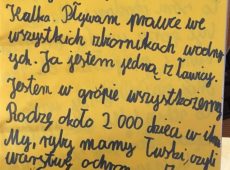 Halka. Pływam prawie we
wszystkich zbiornikach wodny
ych. Ja jestem jedną z ławicy.
Jestem w grópie wszystkożerny
Rodzę około 2 000 dzieci w
My, ryby mamy łuski, czyli
warstwę